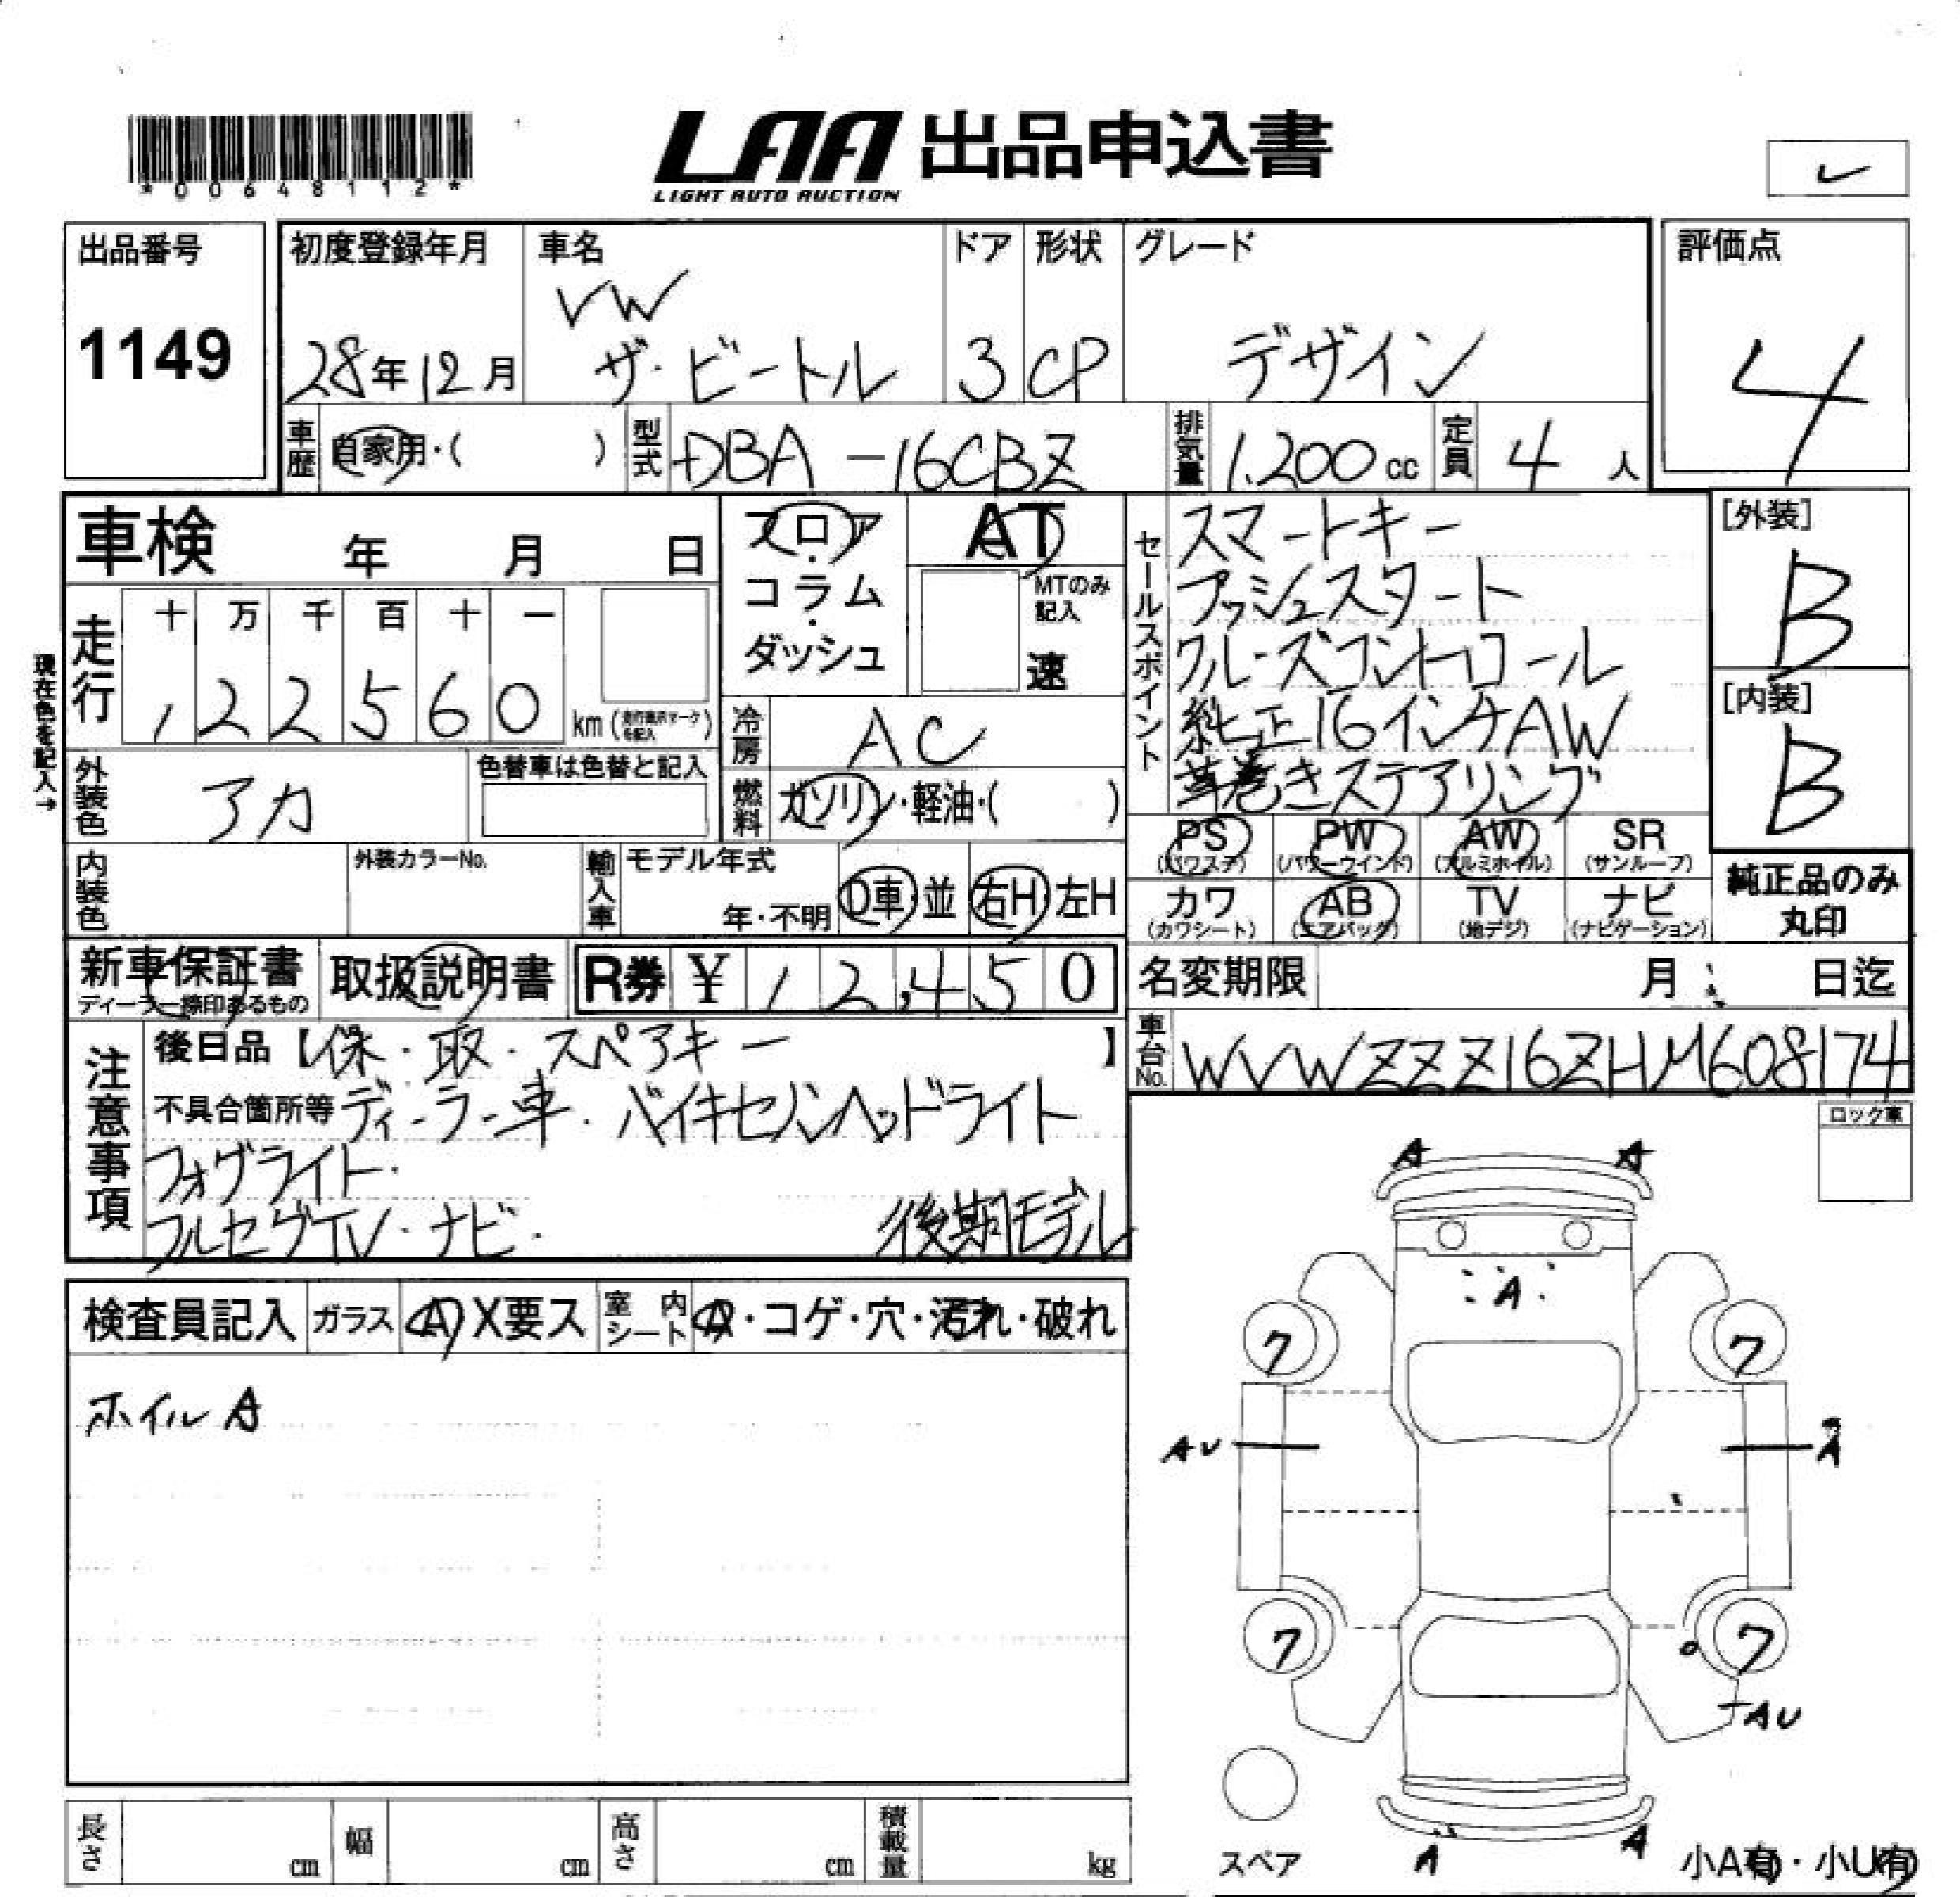 *00648112*
LAA 出品申込書
LIGHT AUTO AUCTION
レ
出品番号
1149
初度登録年月
28年12月
車名
VW
ザ・ビートル
ドア
3
形状
CP
グレード
デザイン
評価点
4
車歴
自家用・( )
型式
DBA-16CBZ
排気量
1.200cc
定員
4人
車検 年 月 日
フロア
・
コラム
・
ダッシュ
AT
MTのみ
記入
速
セールスポイント
スマートキー
プッシュスタート
クルーズコントロール
純正16インチAW
革巻きステアリング
[外装]
B
[内装]
B
現在色を記入→
走行
十 万 千 百 十 一
, 2 2 5 6 0 km (走行表示マークを記入)
冷房
AC
外装色
アカ
色替車は色替と記入
燃料
ガソリン・軽油・( )
PS
(パワステ)
PW
(パワーウインド)
AW
(アルミホイル)
SR
(サンルーフ)
内装色
外装カラーNo.
輸入車
モデル年式
年・不明
D車・並
右H・左H
カワ
(カワシート)
AB
(エアバッグ)
TV
(地デジ)
ナビ
(ナビゲーション)
純正品のみ
丸印
新車保証書
ディーラー捺印あるもの
取扱説明書
R券 ¥ 12,450
名変期限 月 日迄
車台No.
WVWZZZ16ZHM608174
注意事項
後日品【保・取・スペアキー 】
不具合箇所等 ディーラー車・バイキセノンヘッドライト
フォグライト・
フルセグTV・ナビ・ 後期モデル
ロック車
検査員記入
ガラス
A X要ス
室内シート
A・コゲ・穴・汚れ・破れ
ホイルA
A A
A
7 7
AU A
7 7
AU
A A
スペア
小A有・小U有
長さ cm
幅 cm
高さ cm
積載量 kg